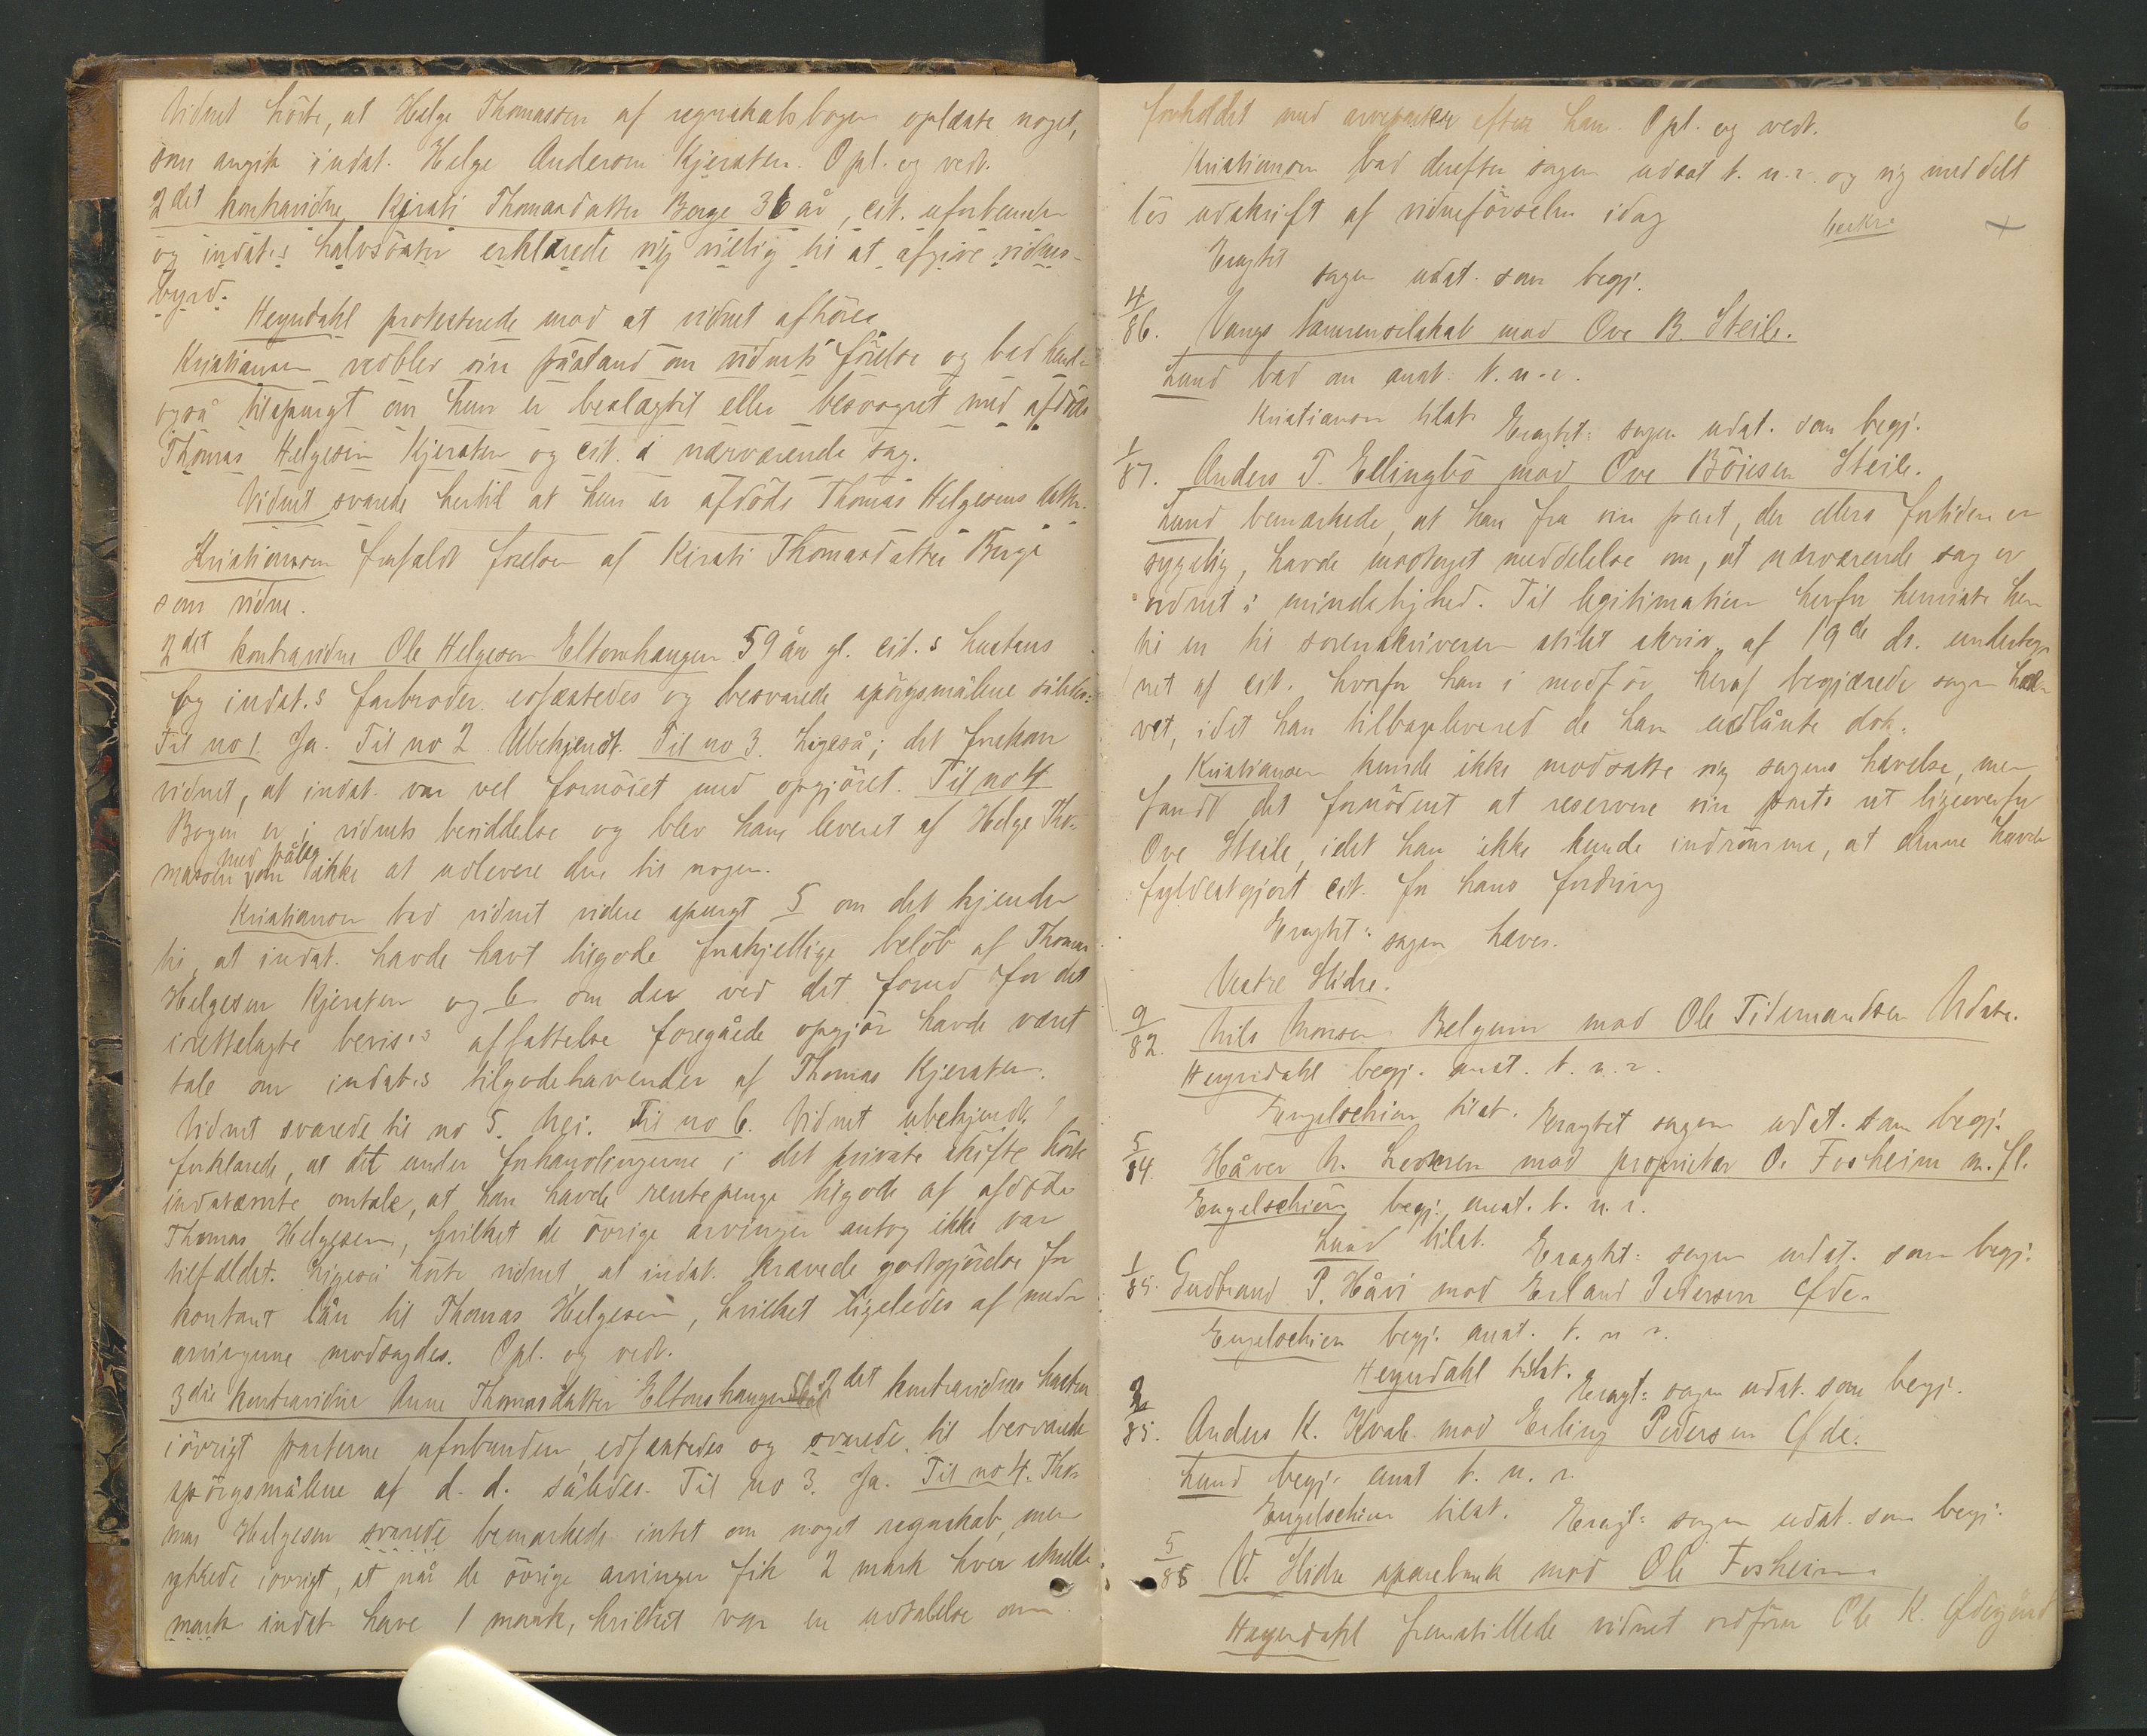 Vidnet hörte, at Helge Thomassen af regnskabsbogen oplæste noget,
som angik indst. Helge Anderson Kjersten. Opl. og vedt.
2det kontravidne Kjersti Thomasdatter Berge 36 år, cit. uforbunden
og indst.s halvsöster erklærede sig villig til at afgive vidnes-
byrd.
Heyerdahl protesterede mod at vidnet afhöres
Kristiansen vedblev sin påstand om vidnets förelse og bad hende
også tilspurgt om hun er beslægtet eller besvogret med afdöde
Thomas Helgesen Kjersten og cit. i nærværende sag.
Vidnet svarede hertil at hun er afdöde Thomas Helgesens datter.
Kristiansen frafaldt förelsen af Kirsti Thomasdatter Berge
som vidne.
2det kontravidne Ole Helgesen Eltonhaugen 59 år gl. cit.s hustrus
og indst.s farbroder edfæstedes og besvarede spörgsmålene således:
Til no 1. Ja. Til no 2 Ubekjendt. Til no 3. Ligeså; det forekom
vidnet, at indst. var vel fornöiet med opgjöret. Til no 4
Bogen er i vidnets besiddelse og blev ham leveret af Helge Tho-
massen med pålæg om ikke at udlevere den til nogen.
Kristiansen bad vidnet videre spurgt 5 om det kjender
til, at indst. havde havt tilgode forskjellige belöb af Thomas
Helgesen Kjersten og 6 om der ved det forud for det
irettelagte bevis's affattelse foregåede opgjör havde været
tale om indst.s tilgodehavender af Thomas Kjersten.
Vidnet svarede til no 5. Nei. Til no 6. Vidnet ubekjendt,
forklarede, at det under forhandlingerne i det private skifte hörte
indstævnte omtale, at han havde rentepenge tilgode af afdöde
Thomas Helgesen, hvilket de övrige arvinger antog ikke var
tilfældet. Ligeså hörte vidnet at indst. krævede godtgjörelse for
kontant lån til Thomas Helgesen, hvilket ligeledes af med-
arvingerne modsagdes. Opl. og vedt.
3die kontravidne Anne Thomasdatter Eltonshaugen 2det kontravidnes hustru
iövrigt parterne uforbunden, edfæstedes og svarede til besvarede
spörgsmålene af d. d. således. Til no 3. Ja. Til no 4. Tho-
mas Helgesen svarede bemærkede intet om noget regnskab, men
ytrede iövrigt, at når de övrige arvinger fik 2 mark hver skulde
mark indst. have 1 mark, hvilket var en udtalelse om
6
forholdet med arveparter efter ham. Opl. og vedt.
Kristiansen bad derefter sagen udsat t. n. r. og sig meddelt
lös udskrift af vidneförselen idag
beskr.
Eragtet sagen udst. som begj.
4/86. Vangs sammenselskab mod Ove B. Steile.
Lund bad om anst. t. n. r.
Kristiansen tilst. Eragtet: sagen udst. som begj.
1/87. Anders T. Ellingbö mod Ove Börresen Steile.
Lund bemærkede, at han fra sin part, der ellers fortiden er
sygelig, havde modtaget meddelelse om, at nærværende sag er
ordnet i mindelighed. Til legitimation herfor henviste han
til en til sorenskriveren stilet skriv. af 19de ds. underteg-
net af cit. hvorfor han i medför heraf begjærede sagen hæ-
vet, idet han tilbageleverede de ham udlånte dok.
Kristiansen kunde ikke modsætte sig sagens hævelse, men
fandt det fornödent at reservere sin parts ret ligeoverfor
Ove Steile, idet han ikke kunde indrömme, at denne havde
fyldestgjort cit. for hans fordring
Eragtet: sagen hæves.
Vestre Slidre.
9/82. Nils Monsen Belgum mod Ole Tidemandsen Udste.
Heyerdahl begj. anst. t. n. r.
Engelschiøn tilst. Eragtet sagen udst. som begj.
5/84. Håver N. Leomen mod proprietær O. Fosheim m. fl.
Engelschiøn begj. anst. t. n. r.
Lund tilst. Eragtet: sagen udst. som begj.
1/85. Gudbrand P. Håvi mod Erland Pedersen Gfde.
Engelschiøn begj. anst. t. n r.
Heyerdahl tilst. Eragt: sagen udst. som begj.
2/85. Anders K. Kvale mod Erling Pedersen Gfde.
Lund begj. anst t. n. r.
Engelschiøn tilst. Eragt: sagen udst. som begj.
5/85 V. Slidre sparebank mod Ole Fosheim
Heyerdahl fremstillede vidnet ordförer Ole K.